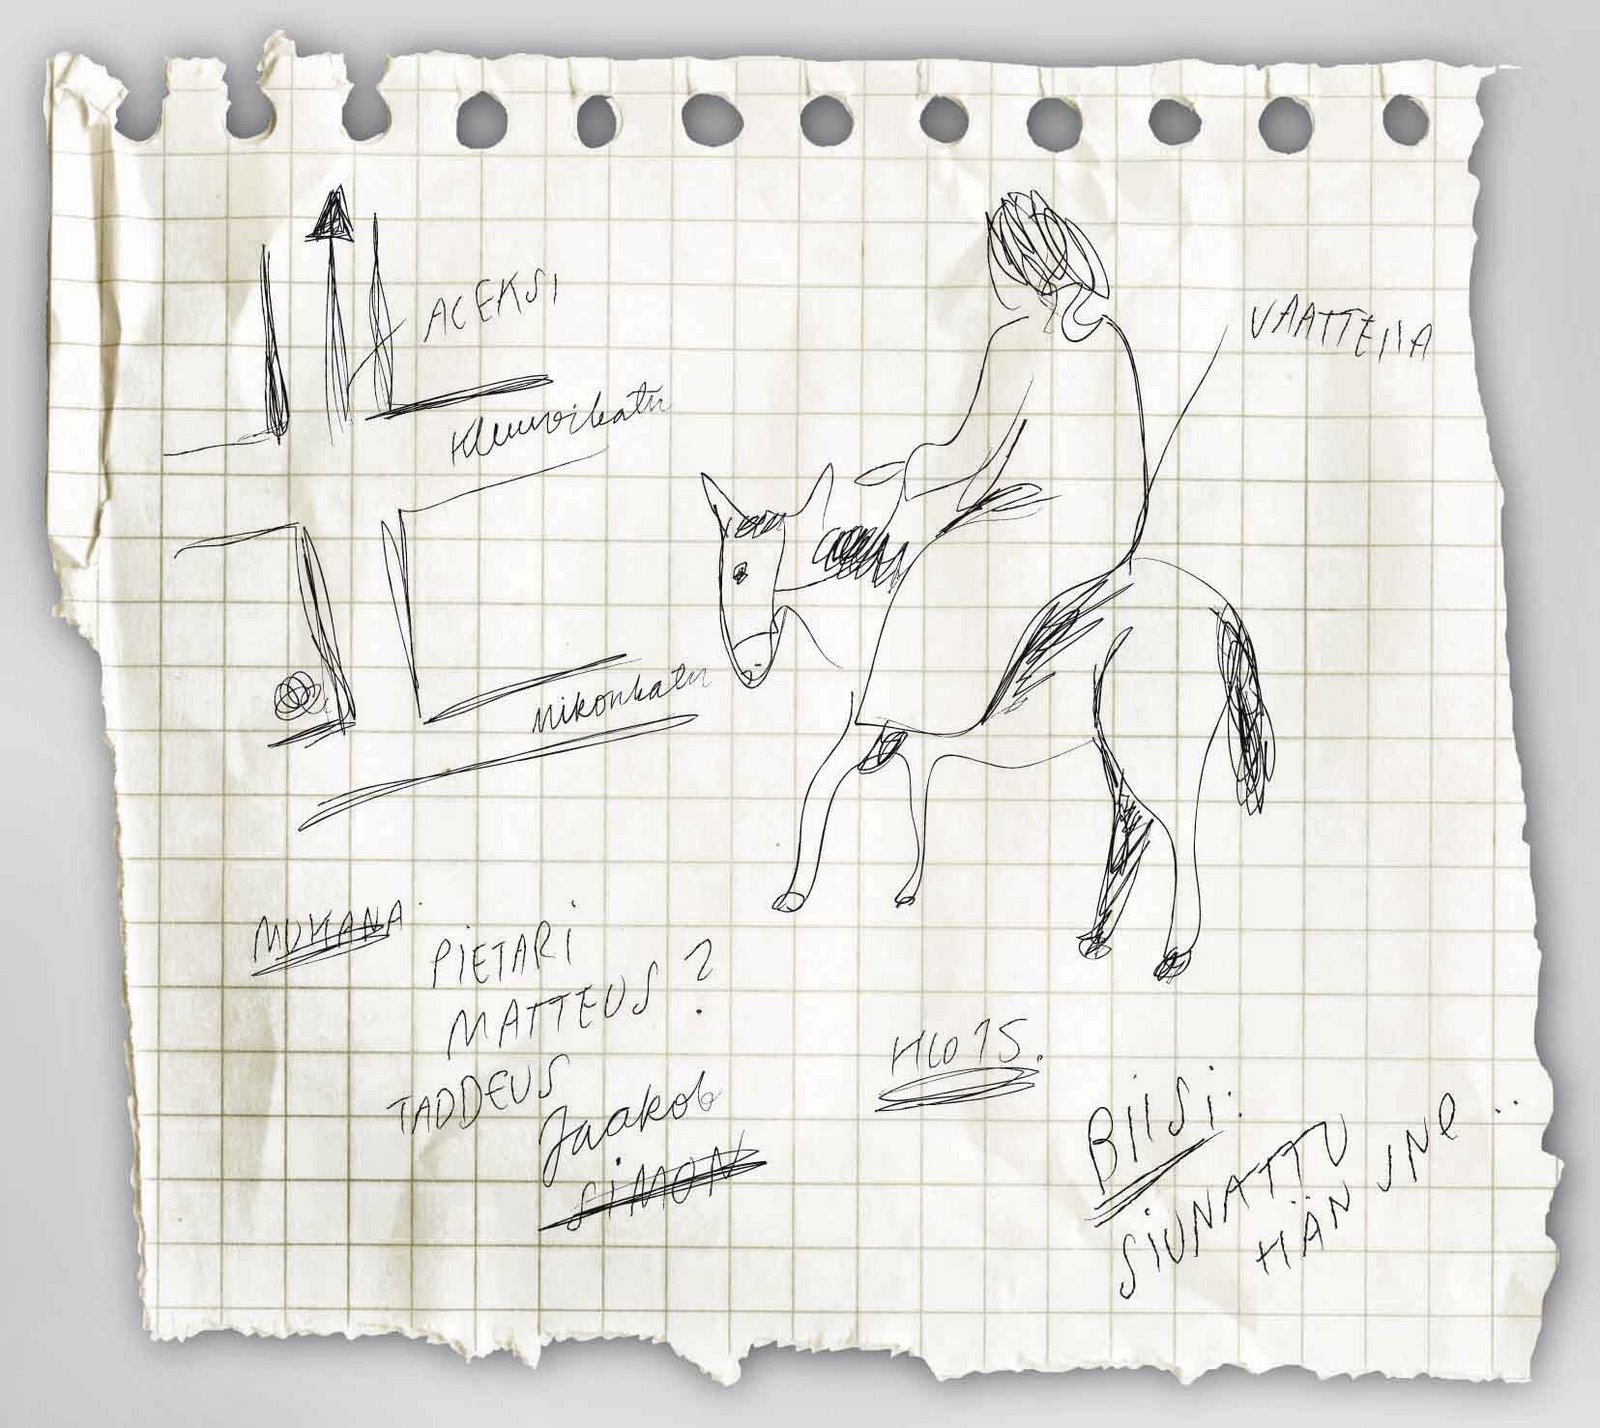 ACEKSI
Kluuvikatu
Mikonkatu
MUKANA
PIETARI
MATTEUS ?
TADDEUS
Jaakob
SIMON
HLO 15.
BIISI:
SIUNATTU
HÄN JNE ..